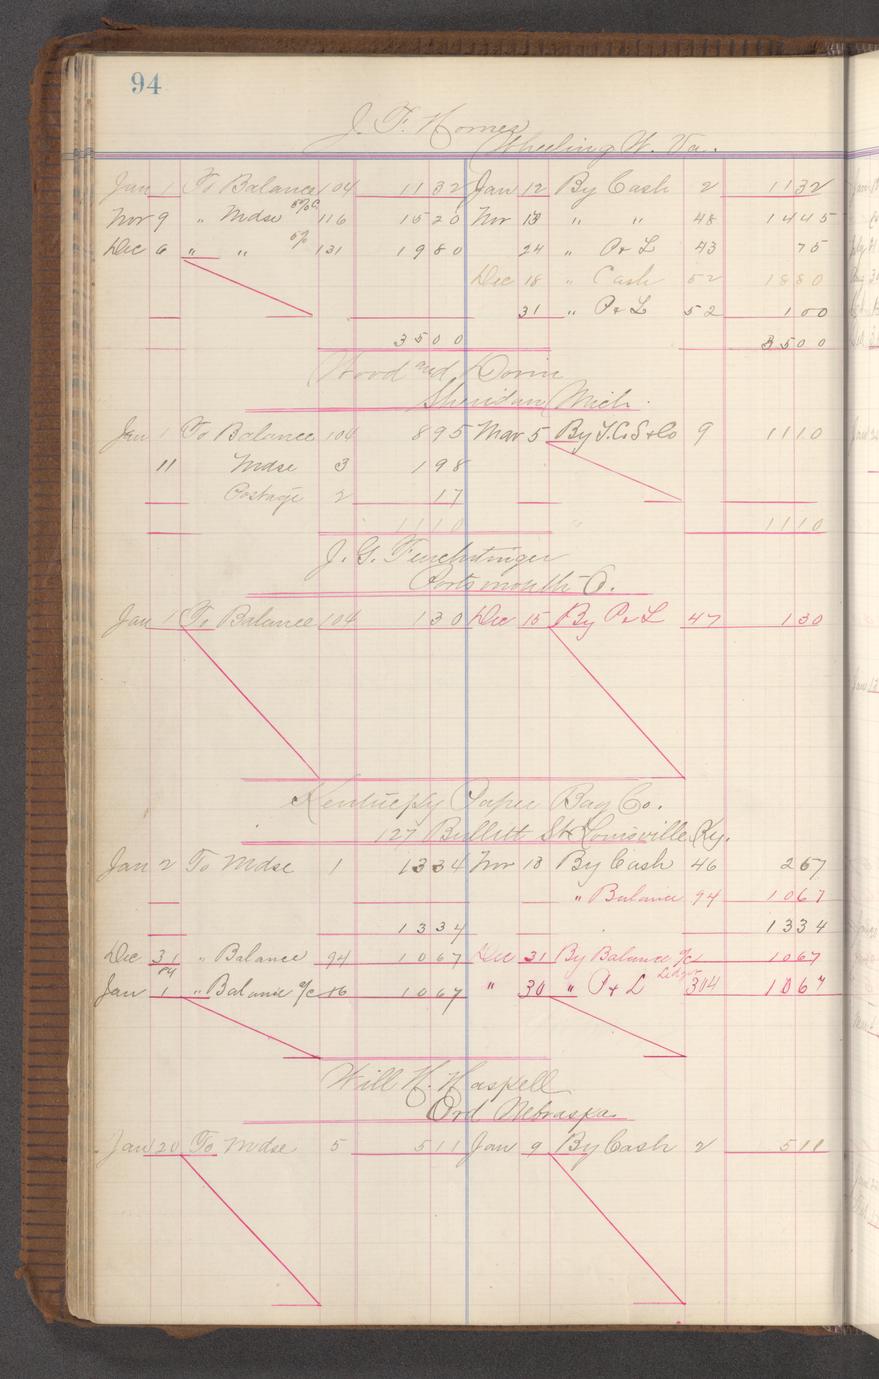 94
J. F. Homer
Wheeling W. Va.
Jan 1 To Balance 104 1132 Jan 12 By Cash 2 1132
Nov 9 " Mdse 116 1520 Nov 13 " " 48 1445
Dec 6 " " 131 1980 24 " P & L 43 75
Dec 18 " Cash 52 1880
31 " P & L 52 100
3500 3500
Wood and
Sheridan Mich.
Jan 1 To Balance 104 895 Mar 5 By & Co 9 1110
11 Mdse 3 198
Postage 2 17
1110 1110
J. G. Feuchtinger
Portsmouth O.
Jan 1 To Balance 104 130 Dec 15 By P & L 47 130
Kentucky Paper Bag Co.
127 Bullitt St Louisville Ky.
Jan 2 To Mdse 1 1334 Nov 13 By Cash 46 267
" Balance 94 1067
1334 1334
Dec 31 " Balance 94 1067 Dec 31 By Balance 1067
Jan 1 " Balance 1067 " 30 " P & L Ledger 304 1067
Will H. Haskell
Ord Nebraska
Jan 20 To Mdse 5 511 Jan 9 By Cash 2 511